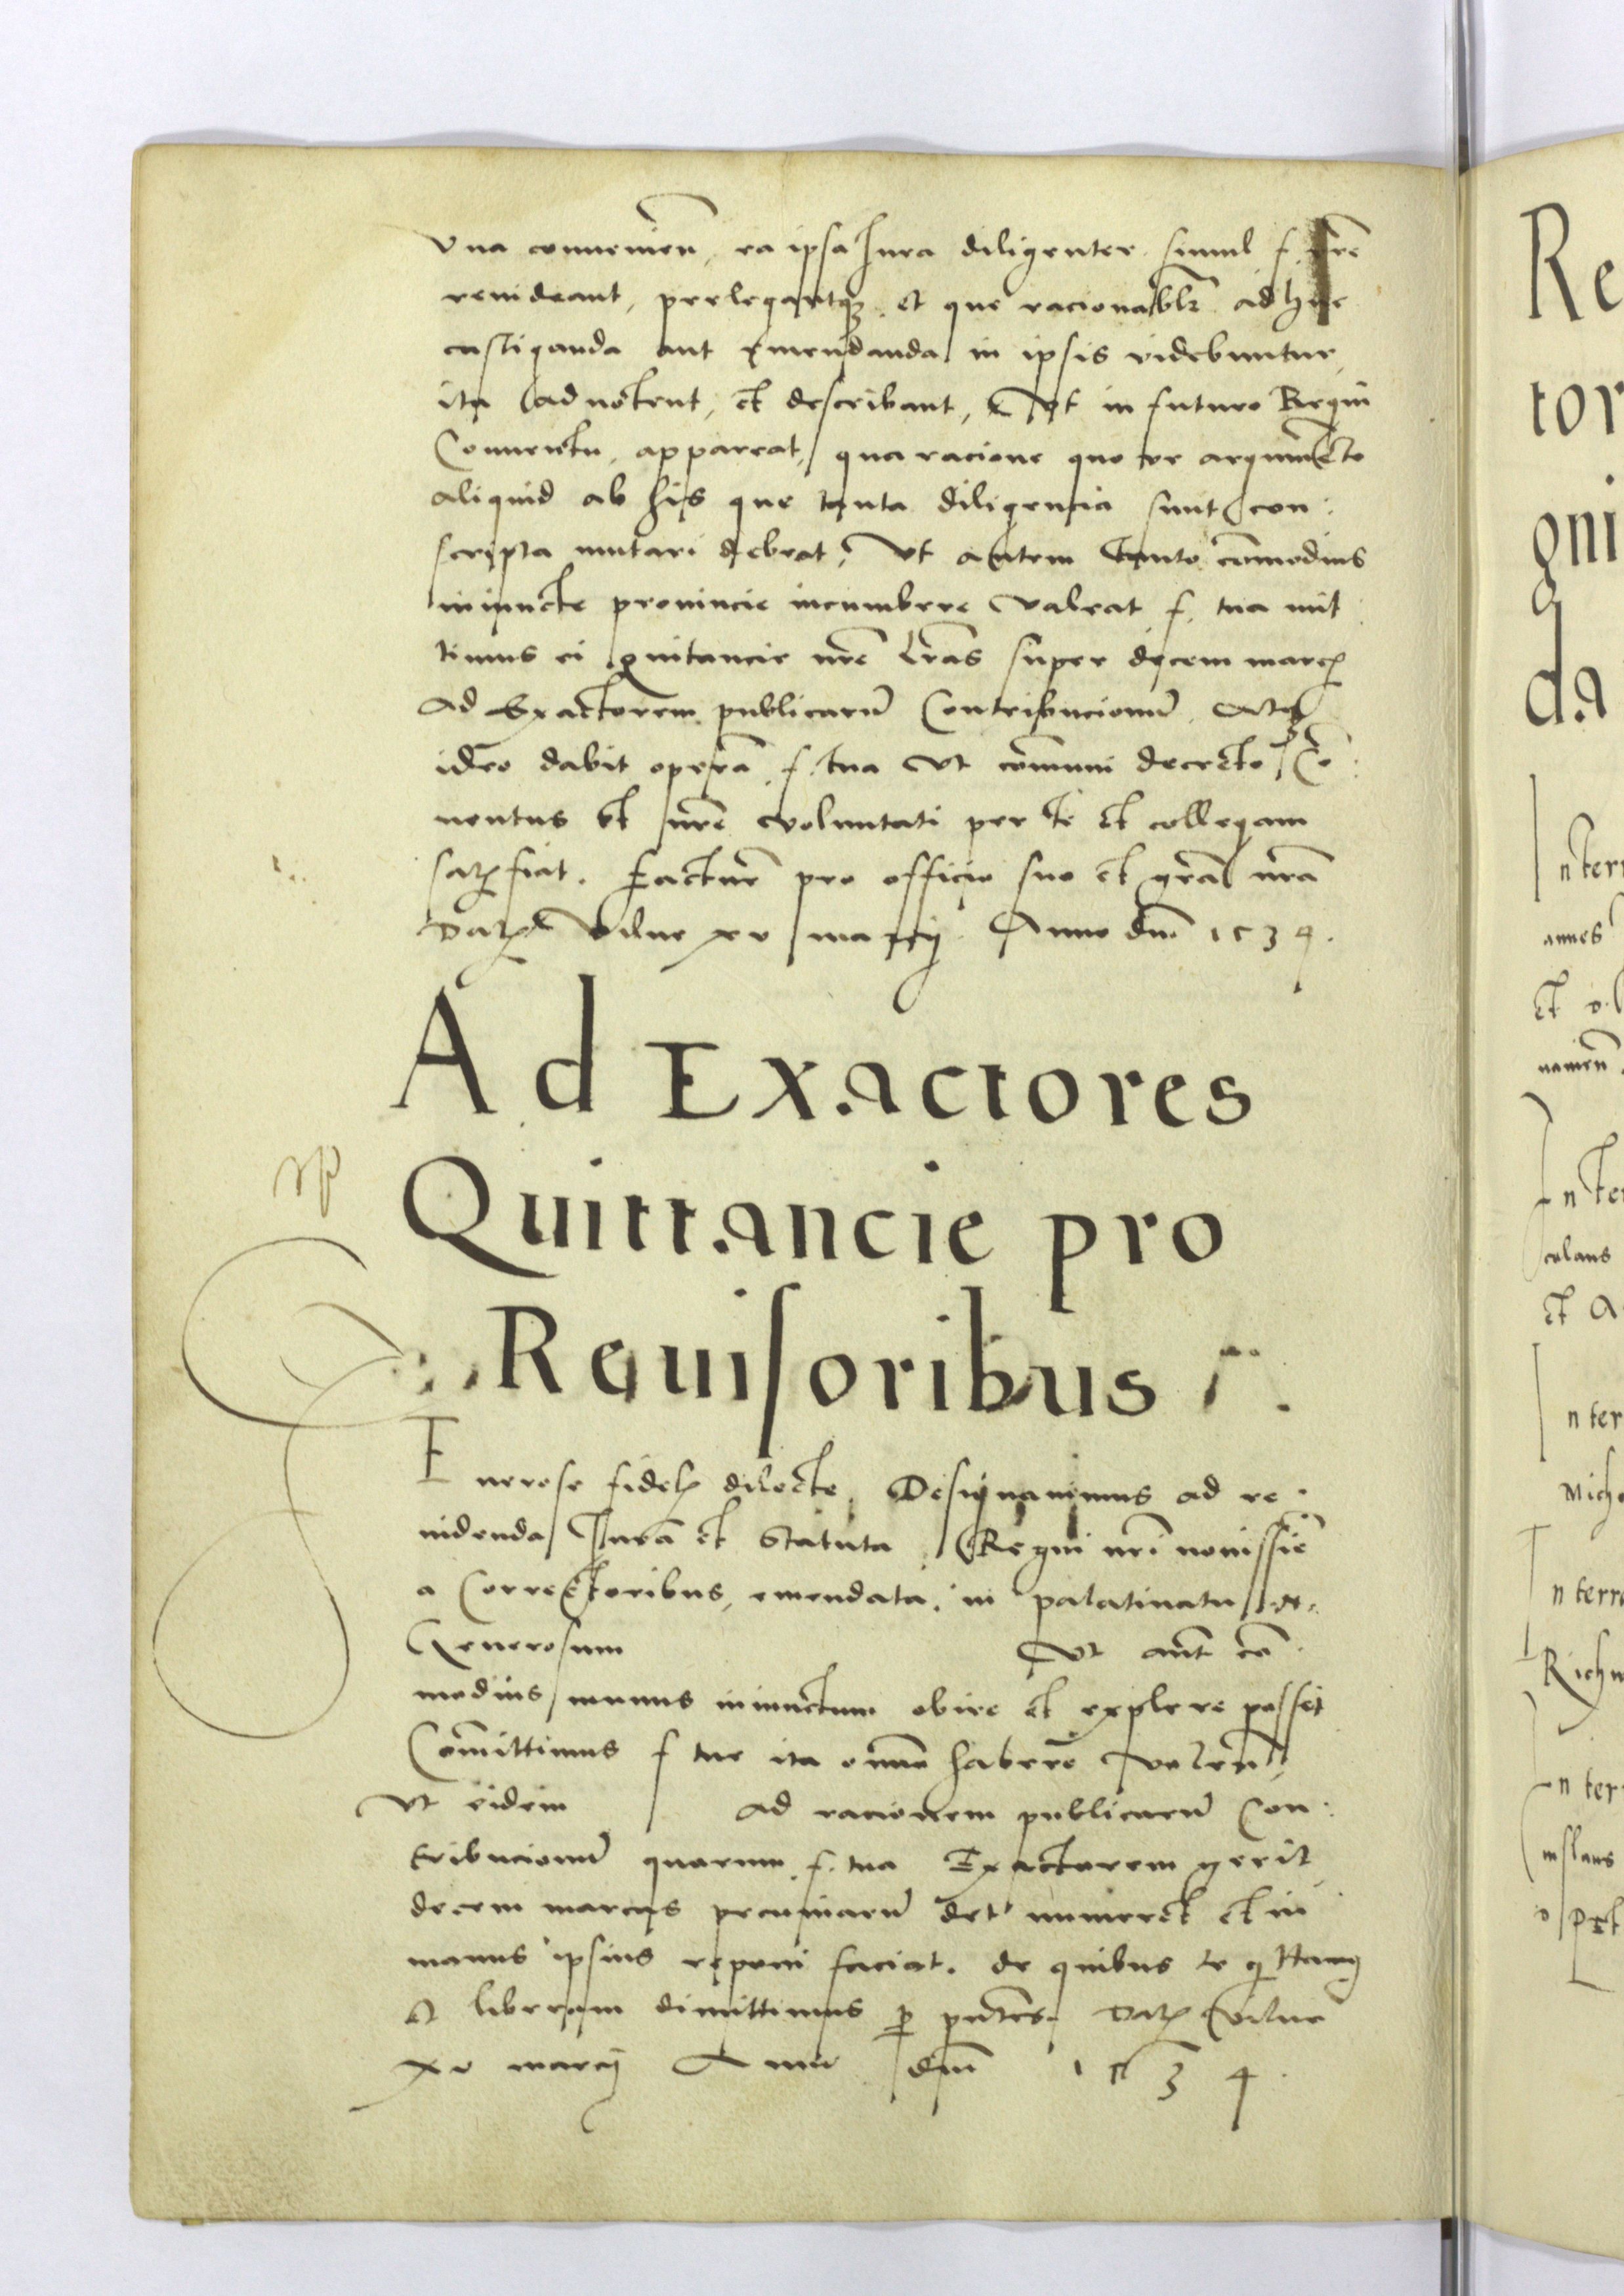 una conuenien, ea ipsa Jura diligenter simul f. nr̃e
reuideant, perlegantqꝫ et que racionabl̃r adhuc
castiganda aut emendanda in ipsis videbuntur,
ita adnotent, et describant, Vt in futuro Regni
Conuentu, appareat, qua racione quo ve argumento
aliquid ab his que tanta diligencia sunt con:
scripta mutari debeat, Vt autem tanto com̃odius
iniuncte prouincie incumbere valeat f. tua mit
timus ei quitancie nr̃e lr̃as super decem marcꝭ
Ad Exactorem publicarũ Contribucionũ Atqꝫ
ideo dabit operã f. tua Vt com̃uni decreto Cõ
uentus et nr̃e voluntati per te et collegam
satꝭfiat. Factur̃ pro officio suo et gr̃a nr̃a
Datꝭ Vilne xv marcij Anno dnĩ 1534.
Ad Exactores
Quittancie pro
Reuisoribus
Enerose fidelꝭ dilecte, Designauimus ad re:
uidenda Jura et Statuta Regni nr̃i nouissiẽ
a Correctoribus, emendata, in palatinatu N.
Generosum Vt aut̃ cõ
modius munus iniunctum obire et explere posset
Com̃ittimus f tue ita om̃no haberẽ volen̄,
Vt eidem ad racionem publicarũ Con:
tribucionũ quarum f. tua Exactorem gerit
decem marcas pecuniarũ det numeret et in
manus ipsius reponi faciat. de quibus te quittamꝰ
Et liberum dimittimus ꝑ pñtes. Datꝭ Vilne
xv marcij Anno dnĩ 1534.
Re
tor
gni
da
nterr
annes
et
Inter
colaus
et A
nter
Mich
nterr
Rich
nter
nislaus
Pet